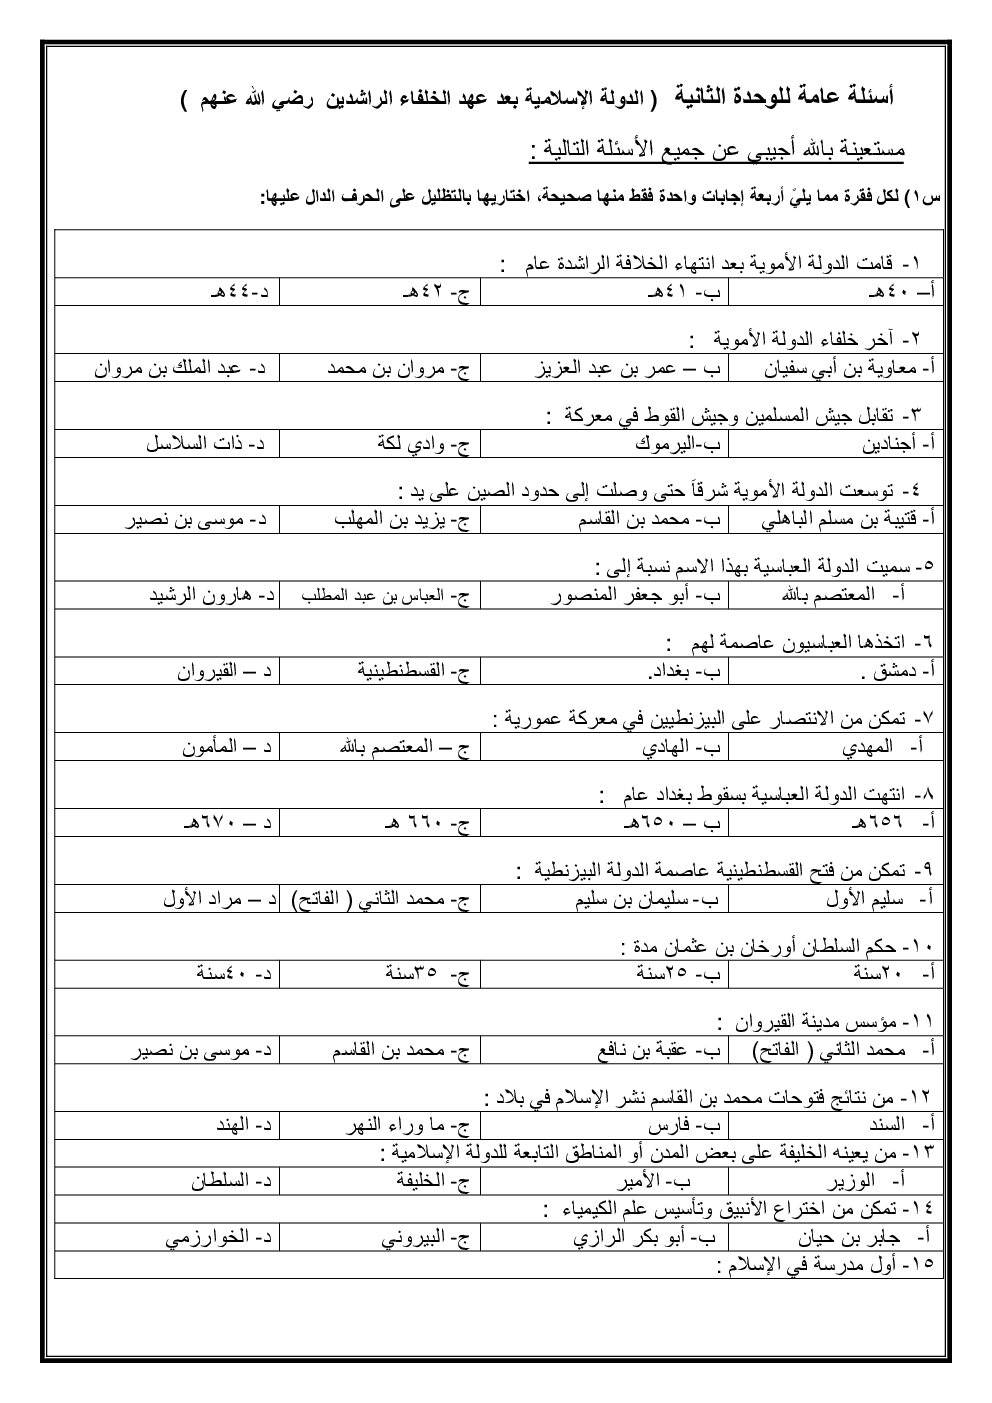 أسئلة عامة للوحدة الثانية ( الدولة الإسلامية بعد عهد الخلفاء الراشدين رضي الله عنهم )
مستعينة بالله أجيبي عن جميع الأسئلة التالية :
س١) لكل فقرة مما يليّ أربعة إجابات واحدة فقط منها صحيحة، اختاريها بالتظليل على الحرف الدال عليها:
١- قامت الدولة الأموية بعد انتهاء الخلافة الراشدة عام :
أ– ٤٠هـ ب- ٤١هـ ج- ٤٢هـ د-٤٤هـ
٢- آخر خلفاء الدولة الأموية :
أ- معاوية بن أبي سفيان ب – عمر بن عبد العزيز ج- مروان بن محمد د- عبد الملك بن مروان
٣- تقابل جيش المسلمين وجيش القوط في معركة :
أ- أجنادين ب-اليرموك ج- وادي لكة د- ذات السلاسل
٤- توسعت الدولة الأموية شرقاً حتى وصلت إلى حدود الصين على يد :
أ- قتيبة بن مسلم الباهلي ب- محمد بن القاسم ج- يزيد بن المهلب د- موسى بن نصير
٥- سميت الدولة العباسية بهذا الاسم نسبة إلى :
أ- المعتصم بالله ب- أبو جعفر المنصور ج- العباس بن عبد المطلب د- هارون الرشيد
٦- اتخذها العباسيون عاصمة لهم :
أ- دمشق . ب- بغداد. ج- القسطنطينية د – القيروان
٧- تمكن من الانتصار على البيزنطيين في معركة عمورية :
أ- المهدي ب- الهادي ج – المعتصم بالله د – المأمون
٨- انتهت الدولة العباسية بسقوط بغداد عام :
أ- ٦٥٦هـ ب – ٦٥٠هـ ج- ٦٦٠ هـ د – ٦٧٠هـ
٩- تمكن من فتح القسطنطينية عاصمة الدولة البيزنطية :
أ- سليم الأول ب- سليمان بن سليم ج- محمد الثاني ( الفاتح) د – مراد الأول
١٠- حكم السلطان أورخان بن عثمان مدة :
أ- ٢٠سنة ب- ٢٥سنة ج- ٣٥سنة د- ٤٠سنة
١١- مؤسس مدينة القيروان :
أ- محمد الثاني ( الفاتح) ب- عقبة بن نافع ج- محمد بن القاسم د- موسى بن نصير
١٢- من نتائج فتوحات محمد بن القاسم نشر الإسلام في بلاد :
أ- السند ب- فارس ج- ما وراء النهر د- الهند
١٣- من يعينه الخليفة على بعض المدن أو المناطق التابعة للدولة الإسلامية :
أ- الوزير ب- الأمير ج- الخليفة د- السلطان
١٤- تمكن من اختراع الأنبيق وتأسيس علم الكيمياء :
أ- جابر بن حيان ب- أبو بكر الرازي ج- البيروني د- الخوارزمي
١٥- أول مدرسة في الإسلام :